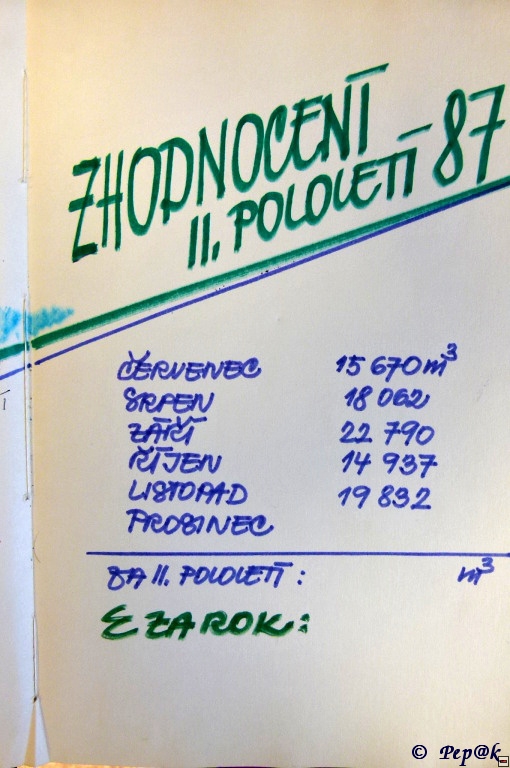 ZHODNOCENÍ
II. POLOLETÍ - 87
ČERVENEC 15 670 m³
SRPEN 18 062
ZÁŘÍ 22 790
ŘÍJEN 14 937
LISTOPAD 19 832
PROSINEC
ZA II. POLOLETÍ : m³
Σ ZA ROK:
© Pep@k